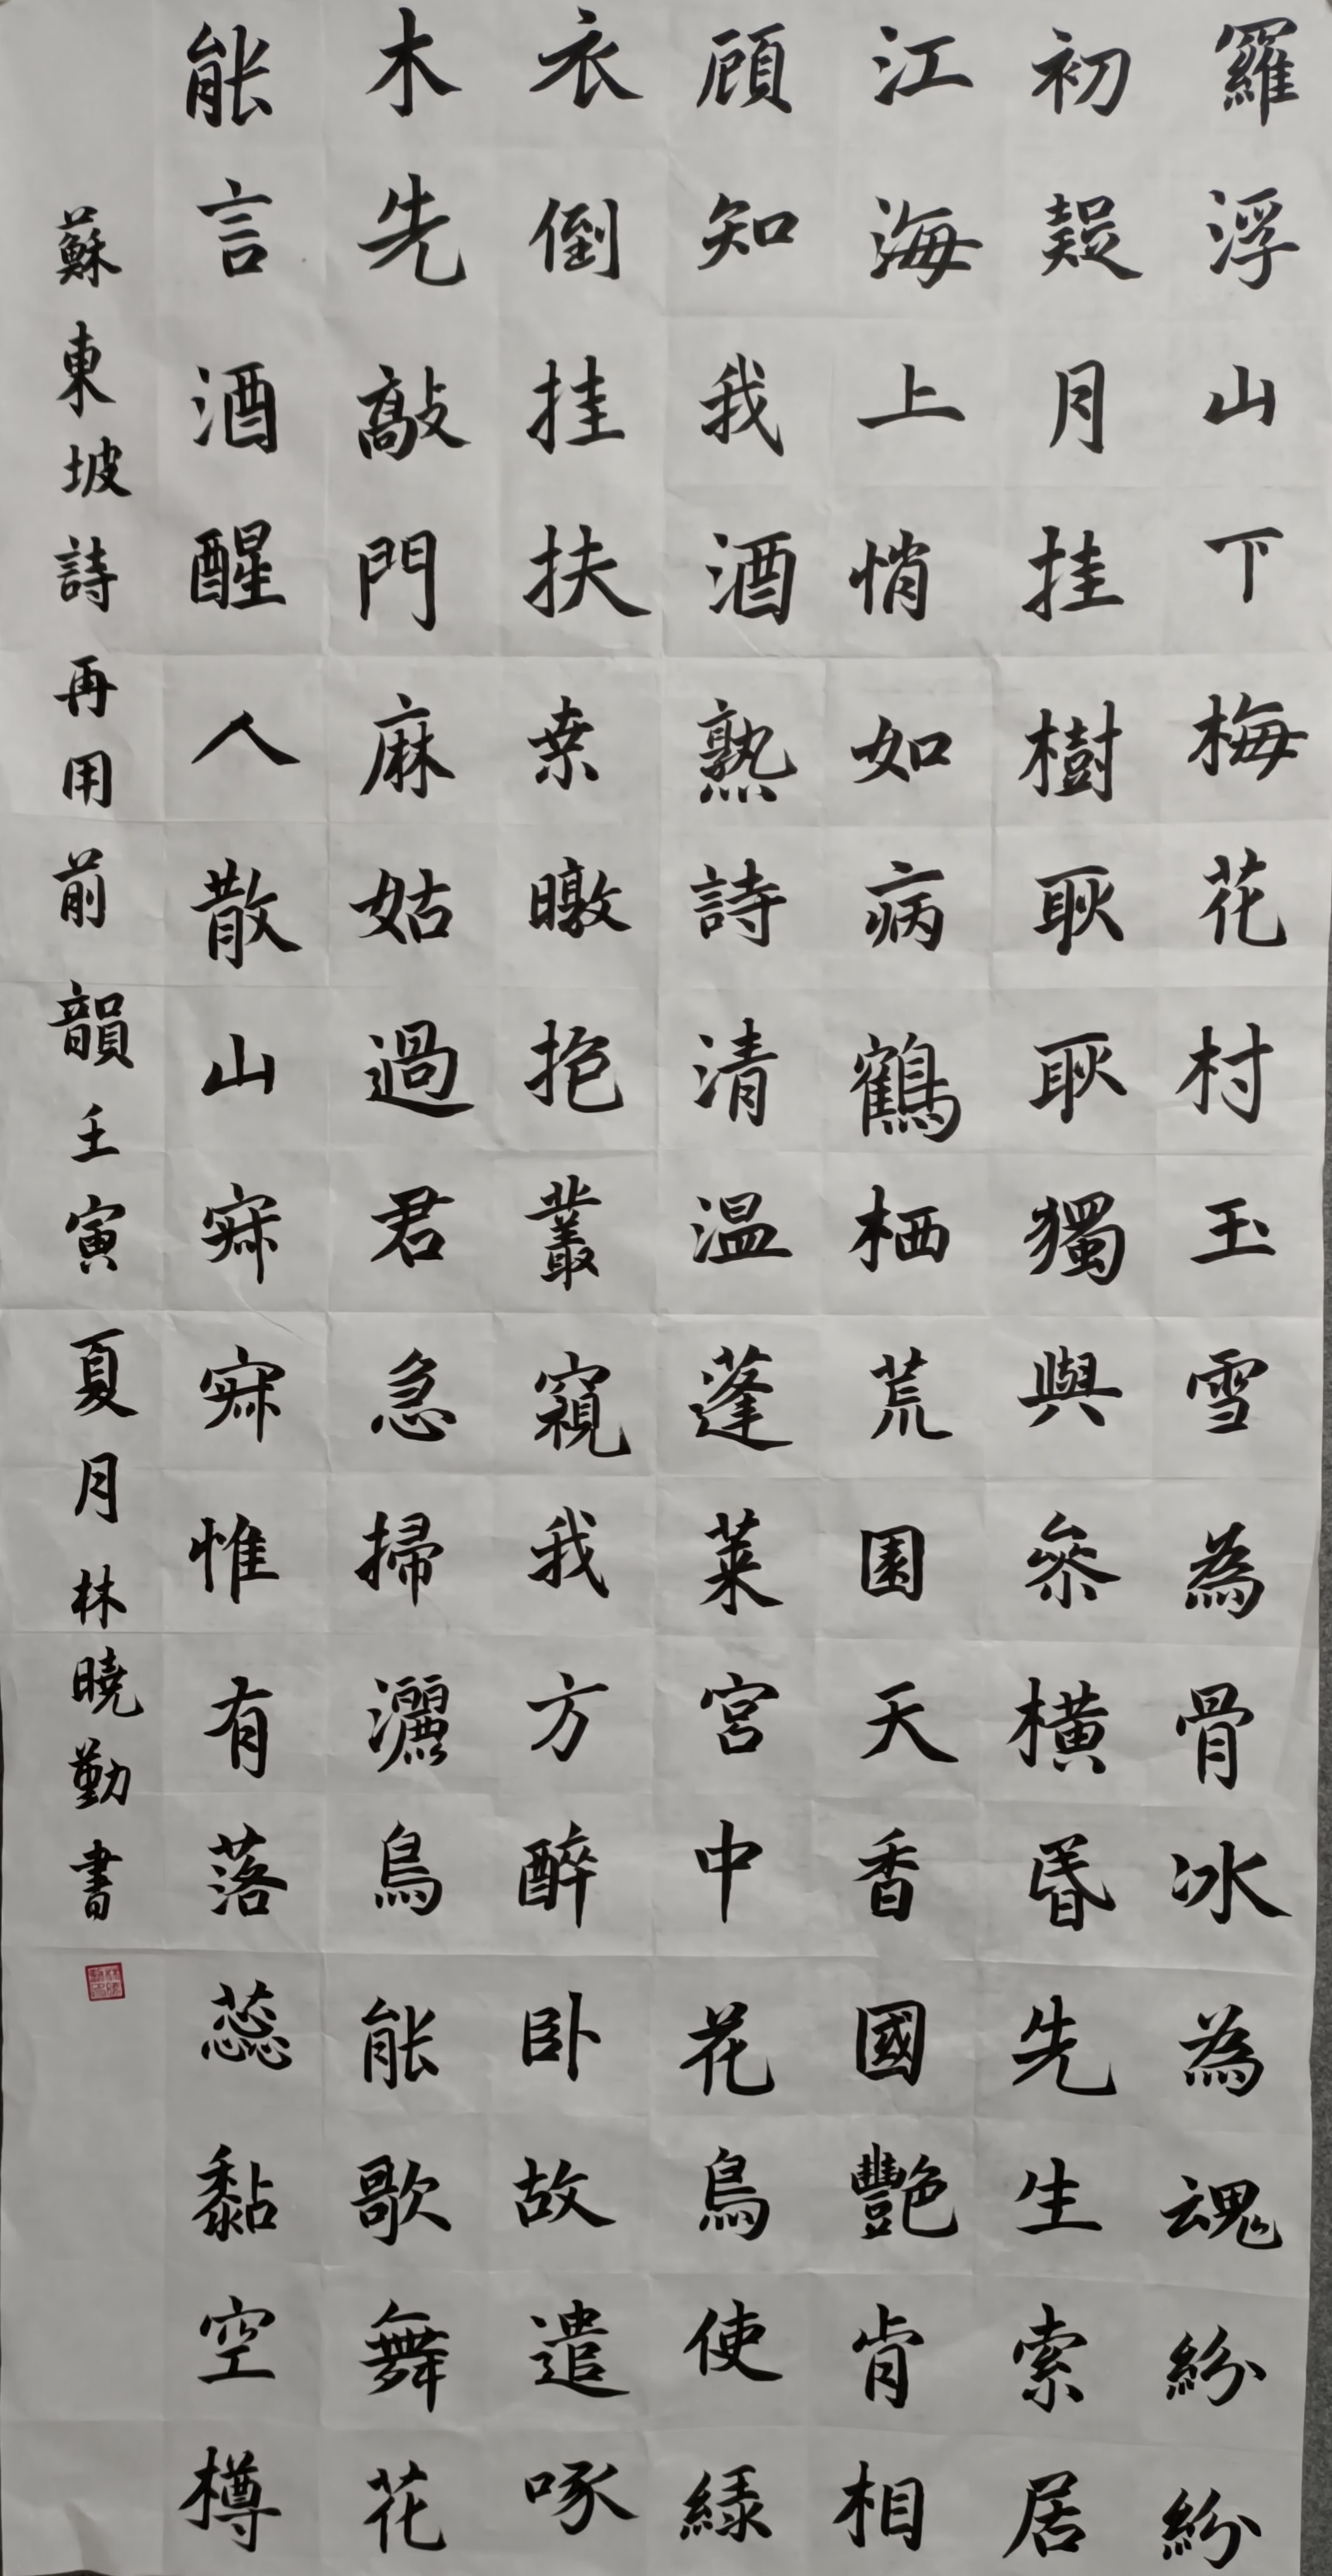 羅浮山下梅花村玉雪為骨冰為魂紛紛
初疑月挂樹耿耿獨與參橫昏先生索居
江海上悄如病鶴栖荒園天香國艷肯相
顧知我酒熟詩清温蓬萊宮中花鳥使綠
衣倒挂扶桒暾抱叢窺我方醉卧故遣啄
木先敲門麻姑過君急掃灑鳥能歌舞花
能言酒醒人散山寂寂惟有落蕊黏空樽
蘇東坡詩再用前韻壬寅夏月林曉勤書